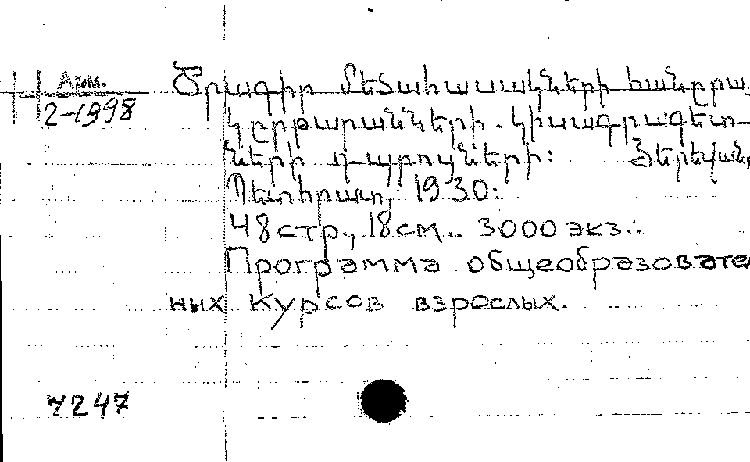 Арм.
2-1998
Ծրագիր մեծահասակների հանըրա
կըրթարանների. կիսագրագետ-
ների դպրոցների: Յերեվան,
Պետհրատ, 1930:
48 стр., 18 см.. 3000 экз.:
Программа общеобразовате
ных курсов взрослых.
7247